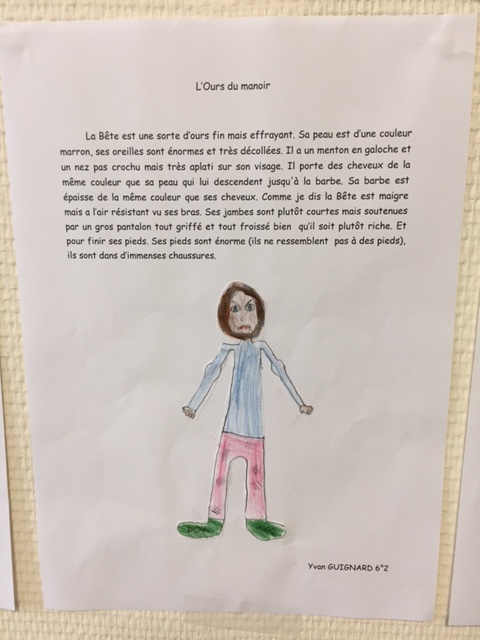 L'Ours du manoir
La Bête est une sorte d'ours fin mais effrayant. Sa peau est d'une couleur
marron, ses oreilles sont énormes et très décollées. Il a un menton en galoche et
un nez pas crochu mais très aplati sur son visage. Il porte des cheveux de la
même couleur que sa peau qui lui descendent jusqu'à la barbe. Sa barbe est
épaisse de la même couleur que ses cheveux. Comme je dis la Bête est maigre
mais a l'air résistant vu ses bras. Ses jambes sont plutôt courtes mais soutenues
par un gros pantalon tout griffé et tout froissé bien qu'il soit plutôt riche. Et
pour finir ses pieds. Ses pieds sont énorme (ils ne ressemblent pas à des pieds),
ils sont dans d'immenses chaussures.
Yvan GUIGNARD 6°2